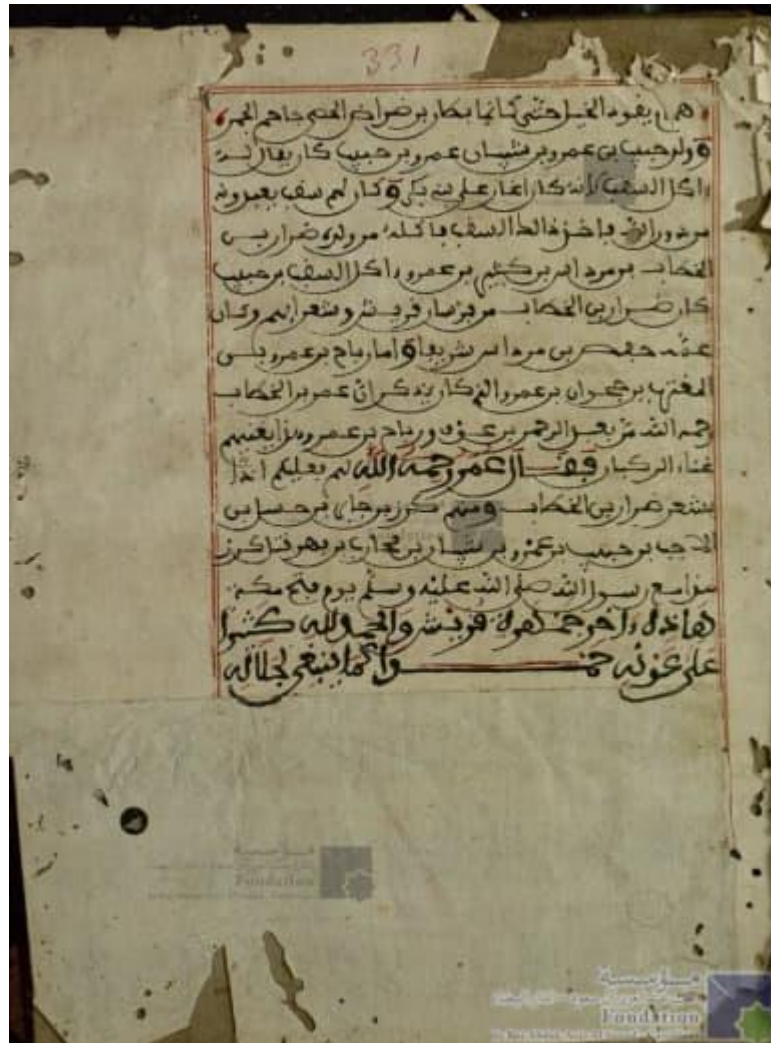 331
يقود الخيل حتى كأنما يطار برضراض الحصى جاحم الجمر
وولد حبيب بن عمرو بن شيبان عمرو بن حبيب كان يقال له
ءاكل السقب لأنه كان أغار على بني بكر وكان لهم سقب يعبدونه
من دون الله فأخذ ذلك السقب فأكله من ولده ضرار بن
الخطاب بن مرداس بن كثير بن عمرو ءاكل السقب بن حبيب
كان ضرار بن الخطاب من فرسان قريش وشعرائهم وكان
حفص بن مرداس شريفا وأما رباح بن عمرو بن
المغترف بن حجوان بن عمرو الذي كان يذكر أن عمر بن الخطاب
رحمه الله مر بعبد الرحمن بن عوف ورباح بن عمرو يغنيهم
غناء الركبان فقال عمر رحمه الله
بشعر ضرار بن الخطاب ومنهم كرز بن جابر بن حسل بن
الأجب بن حبيب بن عمرو بن شيبان بن محارب بن فهر قتل كرز
مع رسول الله صلى الله عليه وسلم يوم فتح مكة
هاذه ءاخر جمهرة قريش والحمد لله كثيرا
على عونه حمدا كما ينبغي لجلاله
مؤسسة
Foundation
مؤسسة
Foundation